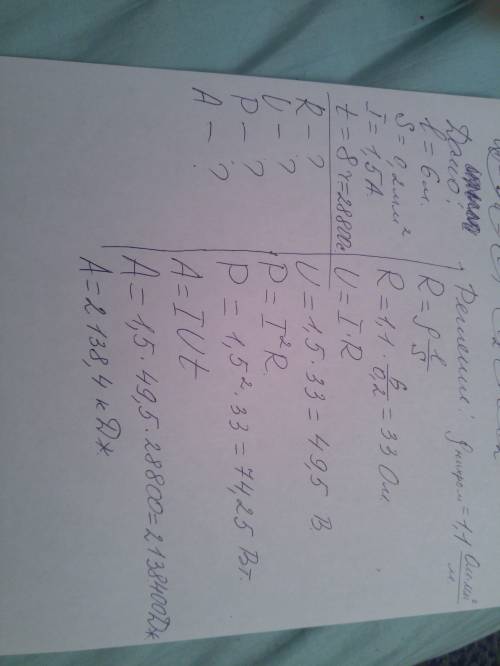 Дано:
l = 6 м.
S = 0,2 мм²
I = 1,5 А
t = 8 ч = 28800с
R – ?
U – ?
P – ?
A – ?
Решение: ρ нихром = 1,1 Ом мм²/м
R = ρ l/S
R = 1,1 · 6/0,2 = 33 Ом
U = I · R
U = 1,5 · 33 = 49,5 В.
P = I²R.
P = 1,5² · 33 = 74,25 Вт.
A = IUt
A = 1,5 · 49,5 · 28800 = 2138400Дж
A = 2138,4 кДж